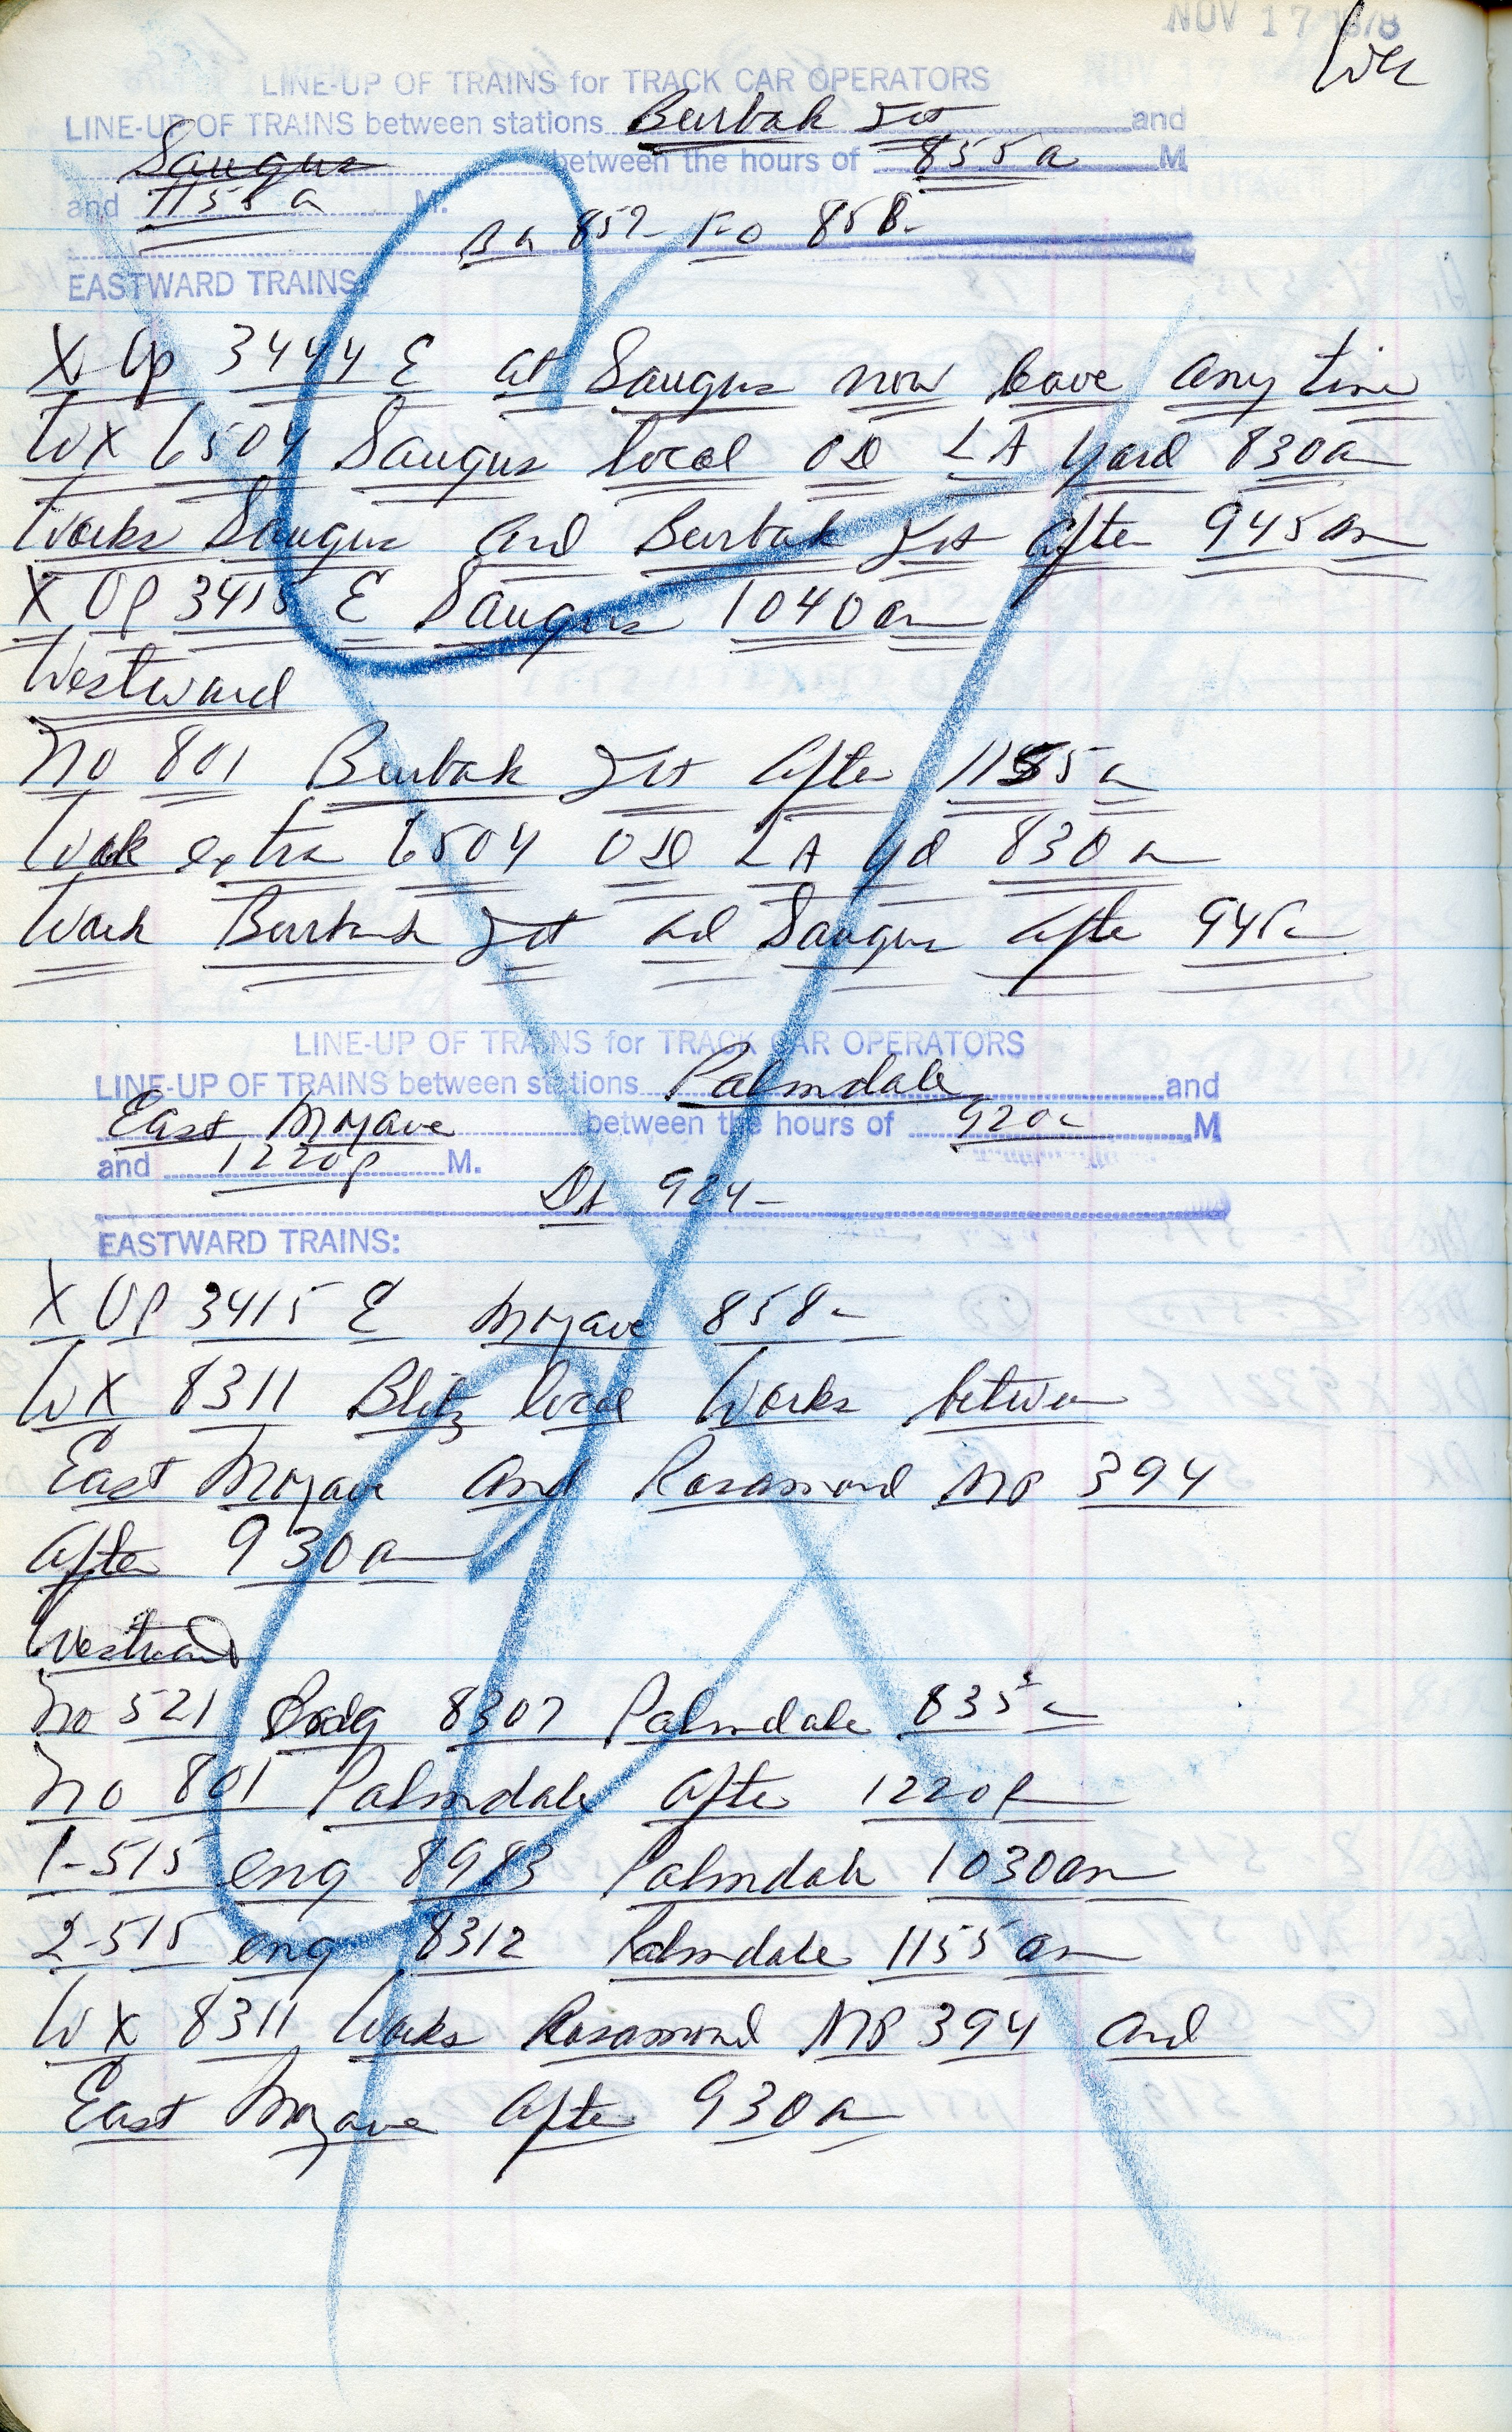 NOV 17 1978
LINE-UP OF TRAINS for TRACK CAR OPERATORS
LINE-UP OF TRAINS between stations Burbak Jct and
Saugus between the hours of 855a M
and 1155a M.
858
EASTWARD TRAINS:
X Op 3444 E at Saugus now leave any time
WX 6504 Saugus local OD LA Yard 830a
Works Saugus and Burbak Jct after 945am
X OP 3415 E Saugus 1040am
Westward
No 801 Burbak Jct After 1155a
Work extra 6504 OD LA Yd 830a
Work Burbank Jct and Saugus after 945a
LINE-UP OF TRAINS for TRACK CAR OPERATORS
LINE-UP OF TRAINS between stations Palmdale and
East Mojave between the hours of 920a M
and 1220p M.
924
EASTWARD TRAINS:
X OP 3415 E Mojave 858a
WX 8311 Blitz local Works between
East Mojave and Rosamond MP 394
After 930a
Westward
No 521 8307 Palmdale 835a
No 801 Palmdale after 1220p
1-515 eng 8983 Palmdale 1030am
2-515 eng 8312 Palmdale 1155am
WX 8311 Works Rosamond MP 394 and
East Mojave After 930a